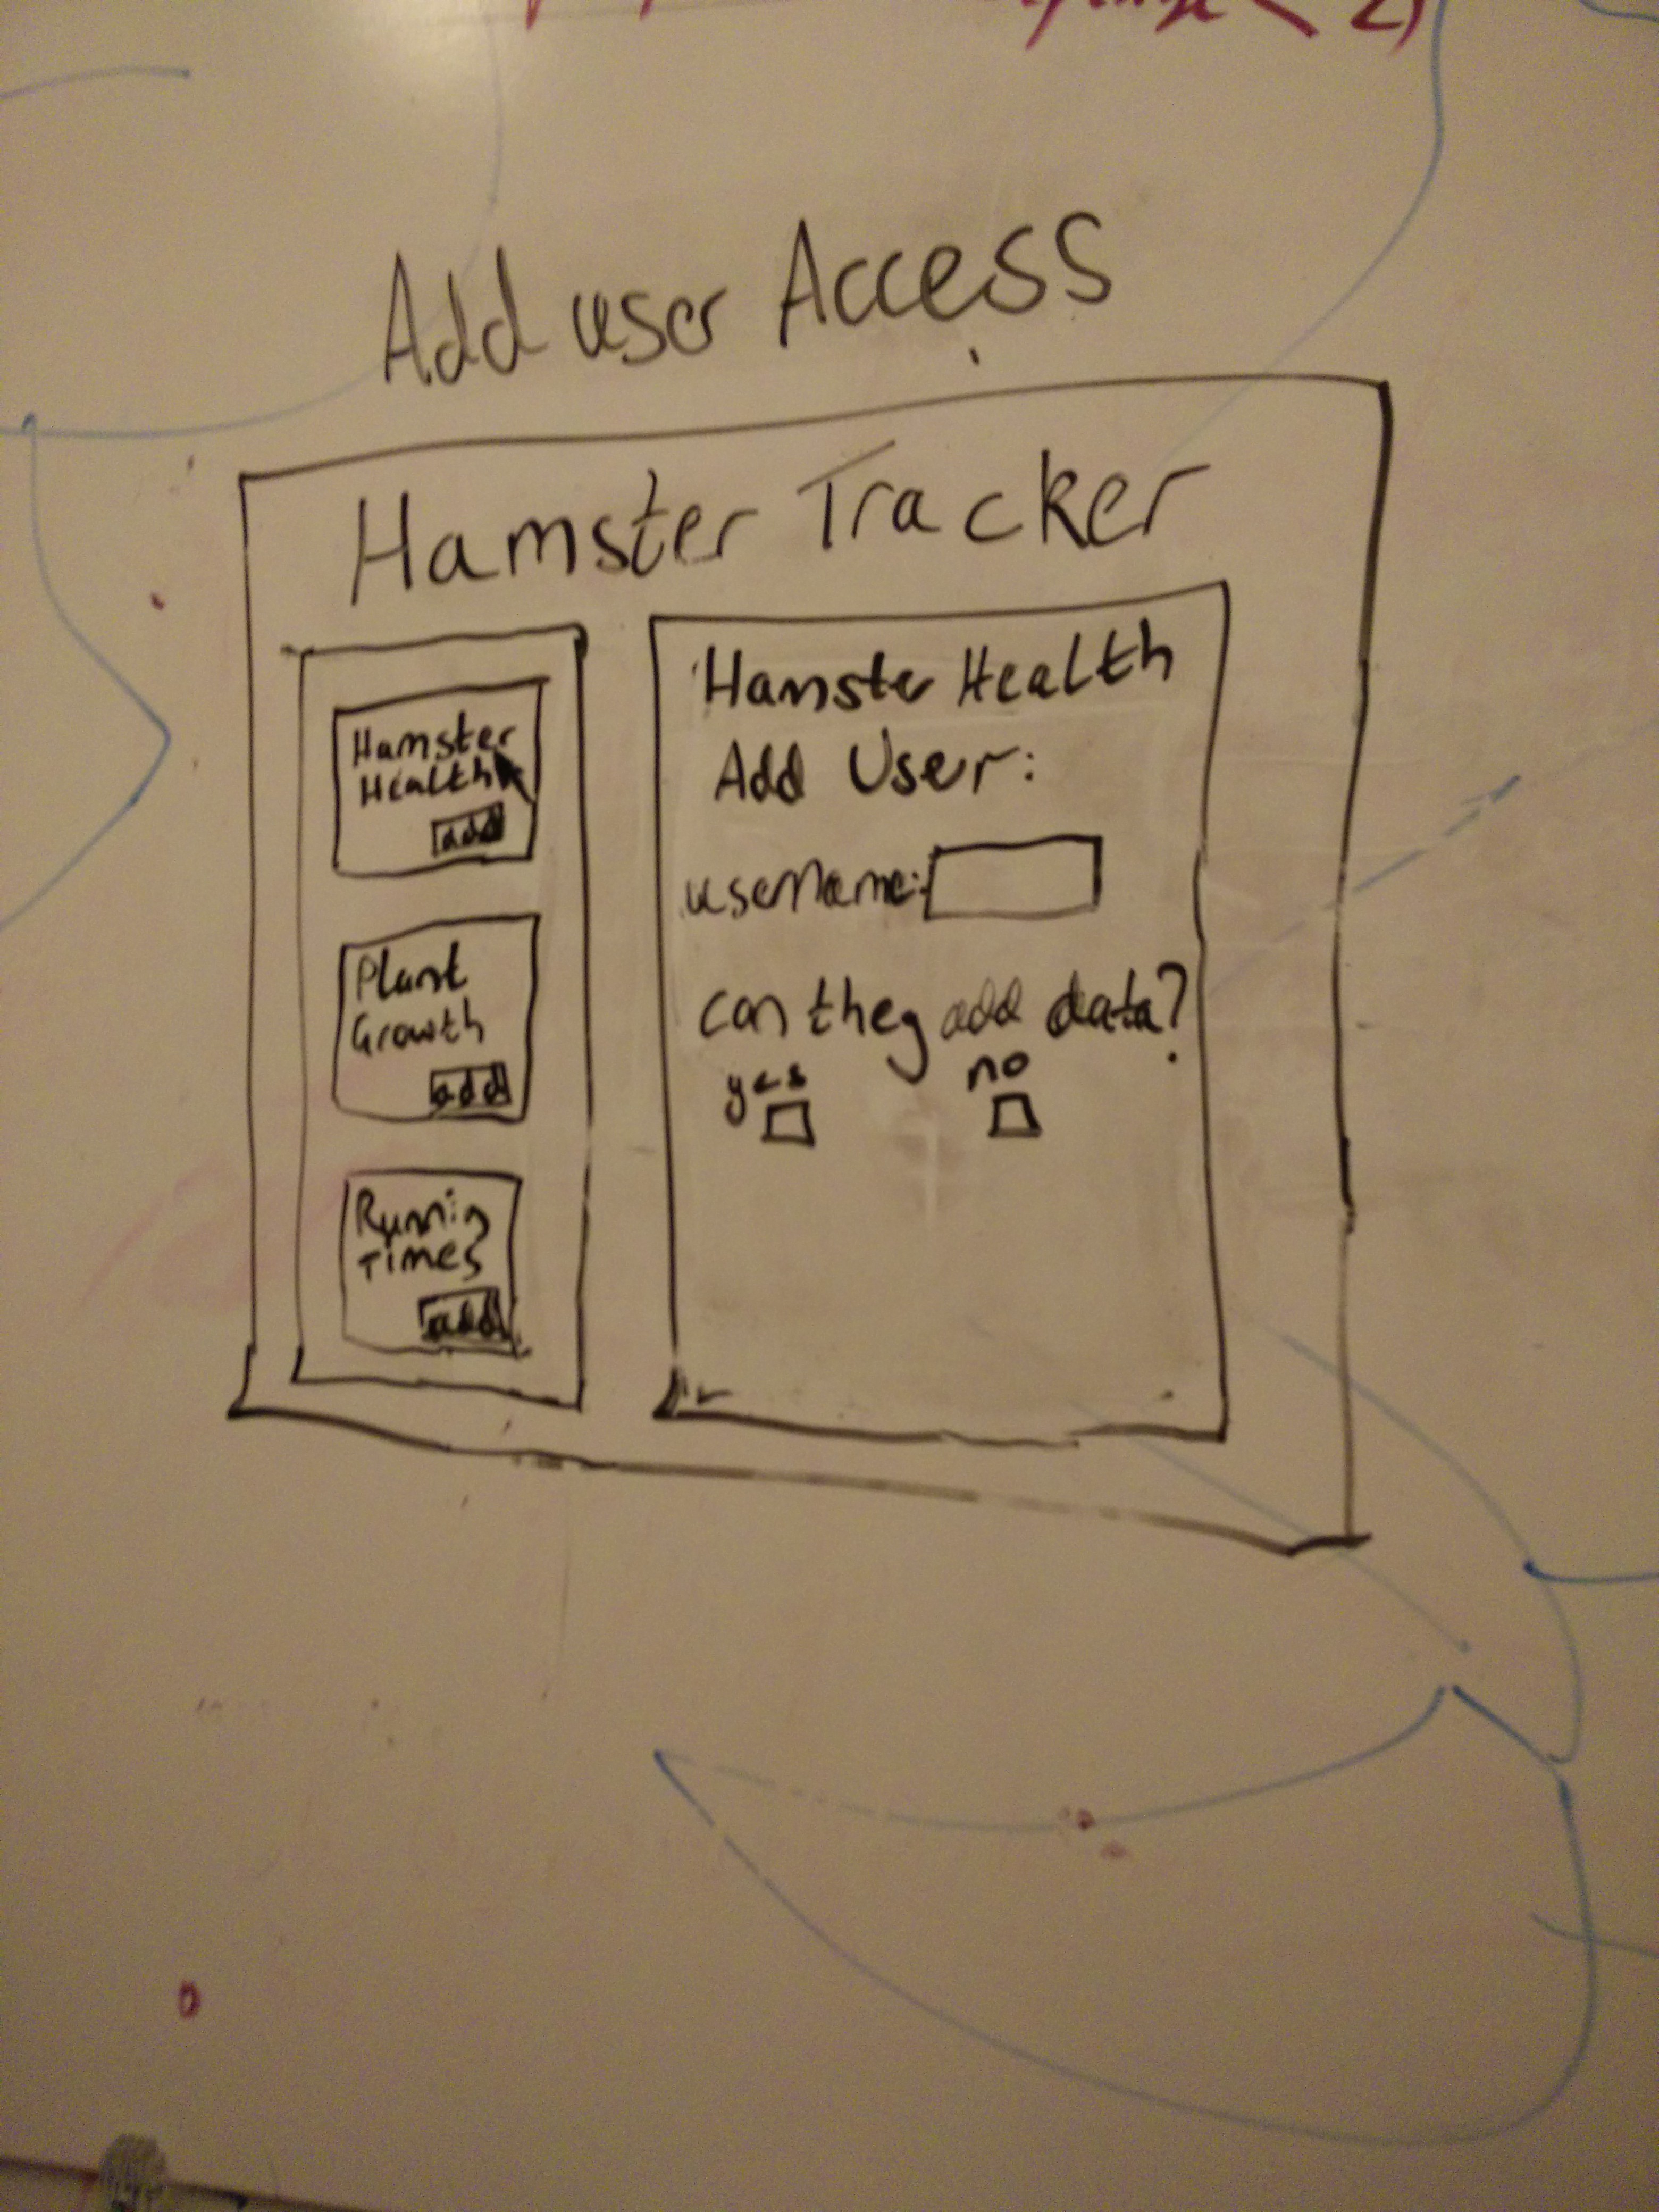 Add user Access
Hamster Tracker
Hamster
Health
add
Plant
Growth
add
Runnin
Times
add
Hamster Health
Add User:
username:
can they add data?
yes no